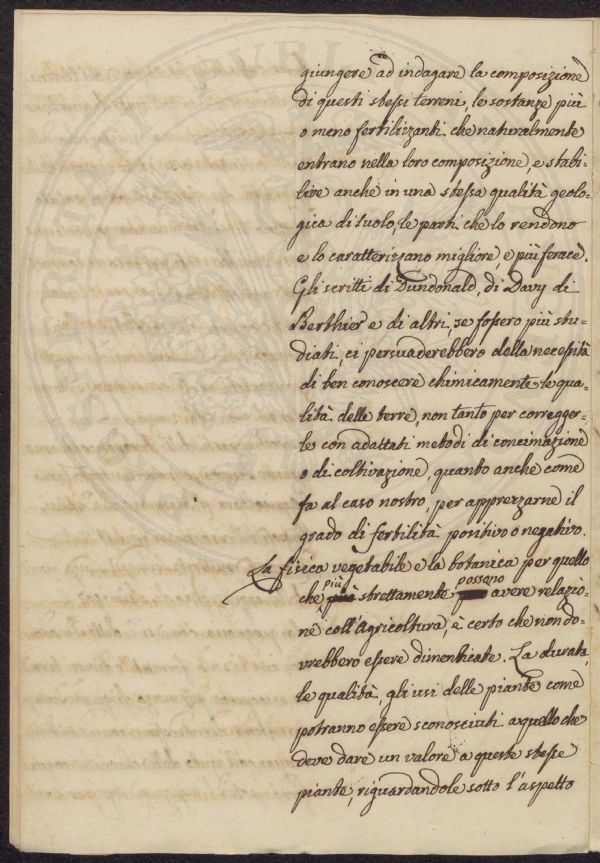 giungere ad indagare la composizione
di questi stessi terreni, le sostanze più
o meno fertilizzanti che naturalmente
entrano nella loro composizione, e stabi=
lire anche in una stessa qualità geolo=
gica di suolo, le parti che lo rendono
e lo caratterizzano migliore, e più ferace.
Gli scritti di Dundonald, di Davy di
Berthier e di altri, se fossero più stu=
diati, ci persuaderebbero della necessità
di ben conoscere chimicamente le qua=
lità delle terre, non tanto per corregger=
le con adattati metodi di concimazione
o di coltivazione, quanto anche come
fa al caso nostro, per apprezzarne il
grado di fertilità positivo o negativo.
La fisica vegetabile e la botanica per quello
che più strettamente possono avere relazio=
ne coll'Agricoltura, è certo che non do=
vrebbero essere dimenticate. La durata,
le qualità, gli usi delle piante come
potranno essere sconosciuti a quello che
deve dare un valore a queste stesse
piante, riguardandole sotto l'aspetto